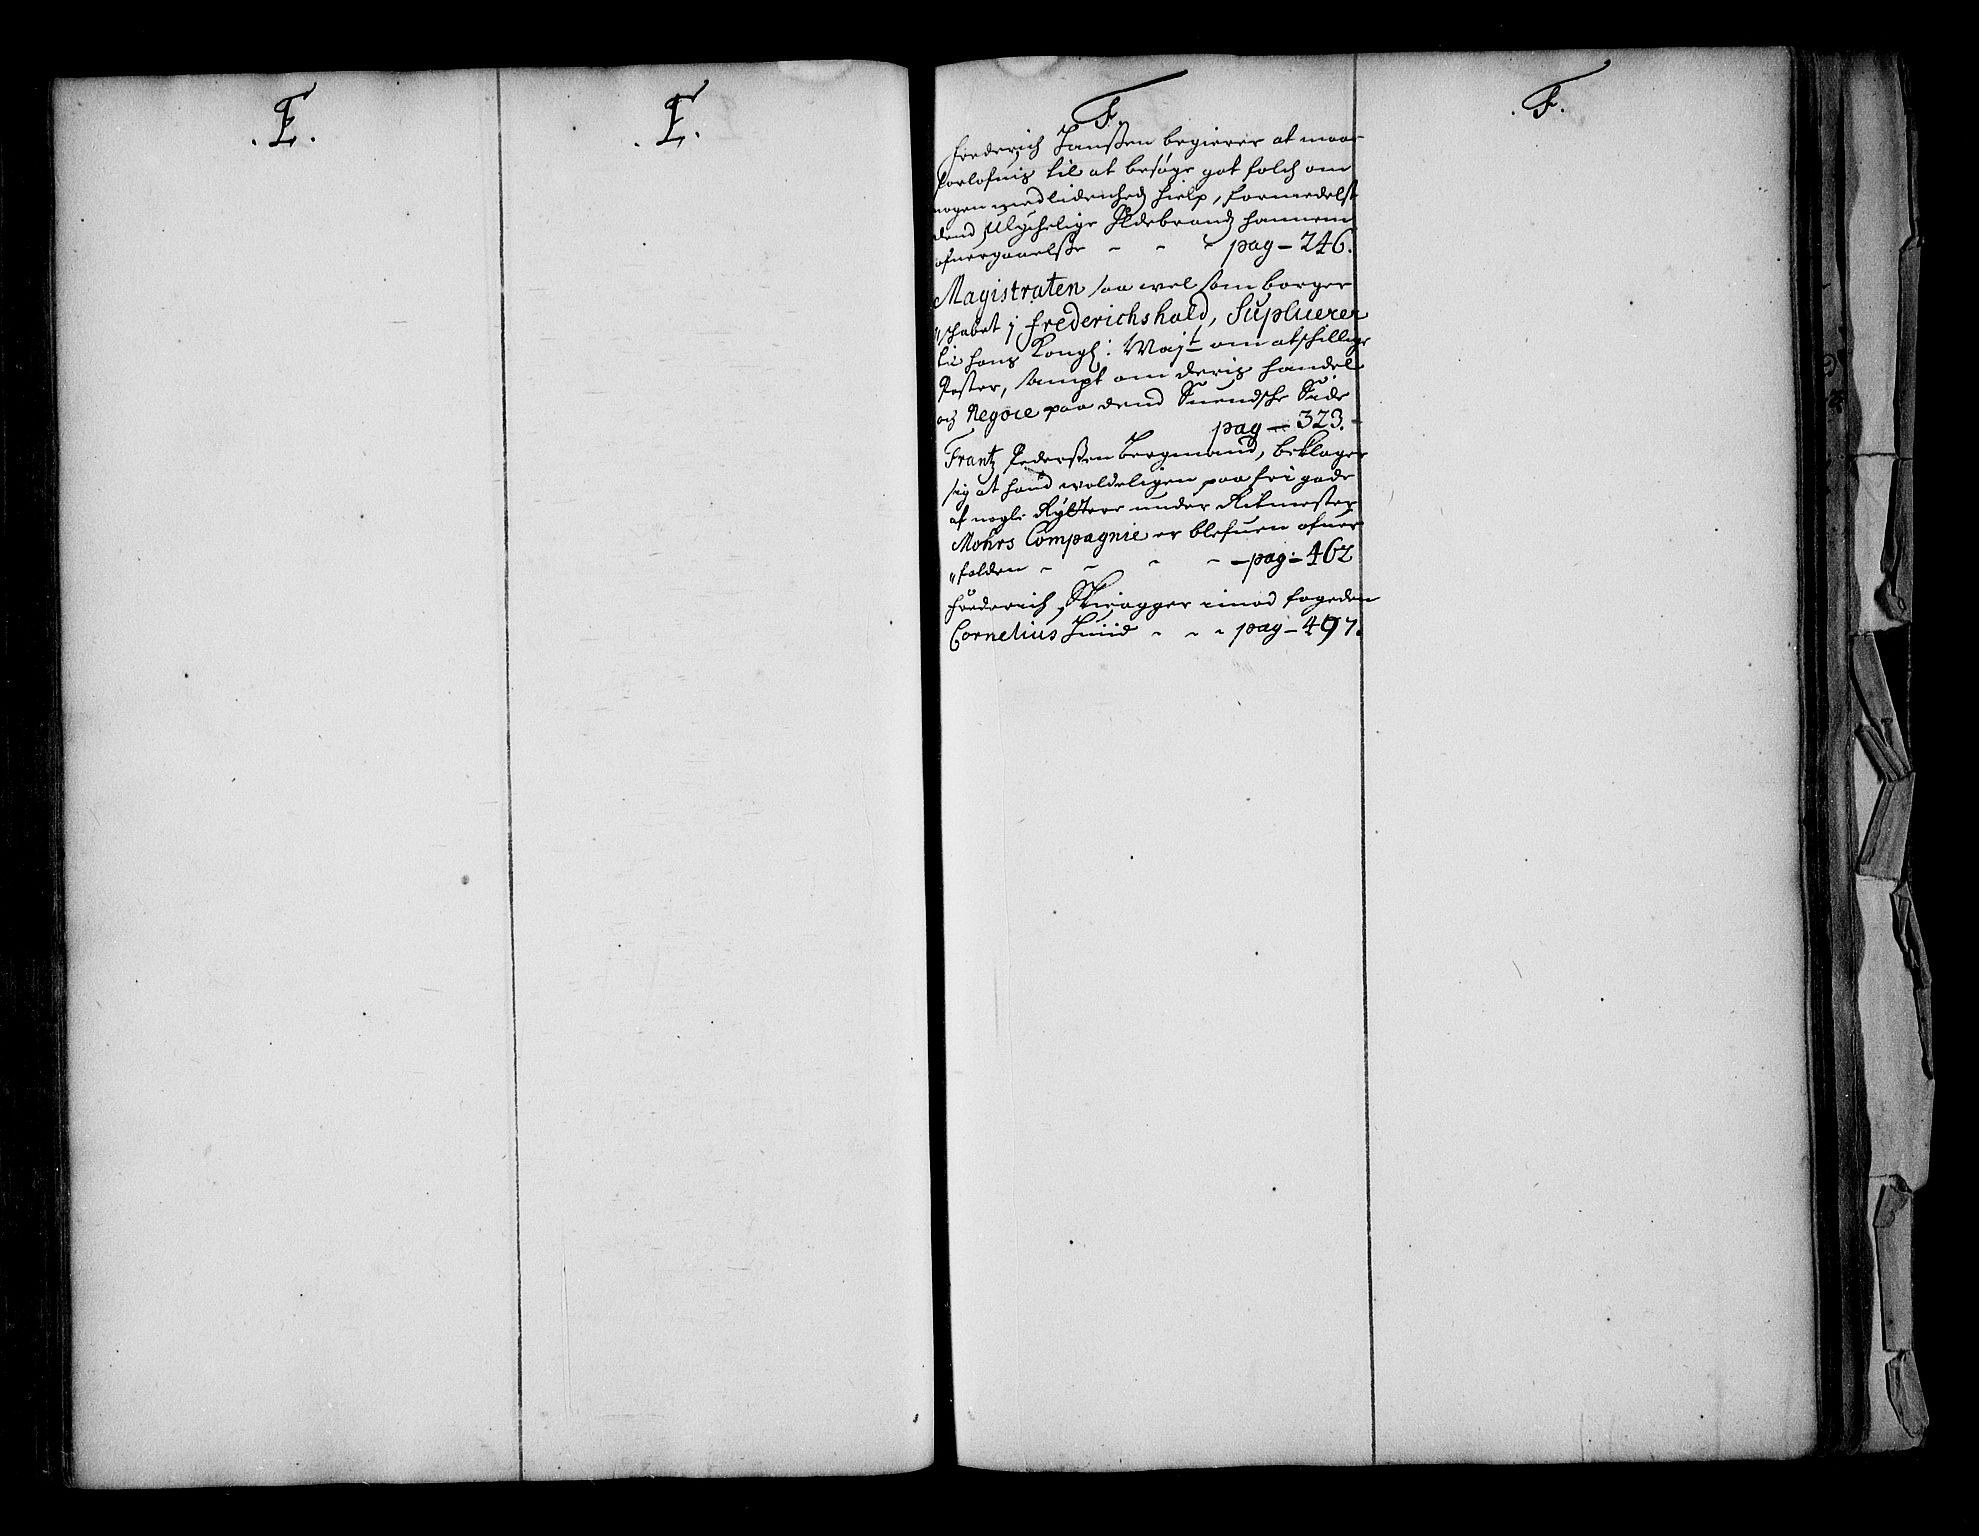 .E.
.E.
F.
Frederich Janßen begierer at maae
Forlofnis til at besøge got folch om
nogen medlidenhed hielp, formedelst
dend Ulychelige Ildebrand hannem
ofuergaaelße - - - pag - 246.
Magistraten saa vel som borger
"schabet j Frederichshald, Supluerer
til hans Kongl: Mayt om atschillige
Poster, sampt om deris handel
og Negoie paa dend Suendsche Side
pag - 323. -
Frantz Pederßen Bergmand, beklager
sig at hand voldeligen paa fri gade
af nogle Ryttere under Ritmester
Mohrs Compagnie er blefuen ofuer
"falden - - - - - pag: - 462
Frederich imod fogeden
Cornelius - - - pag - 497.
.F.